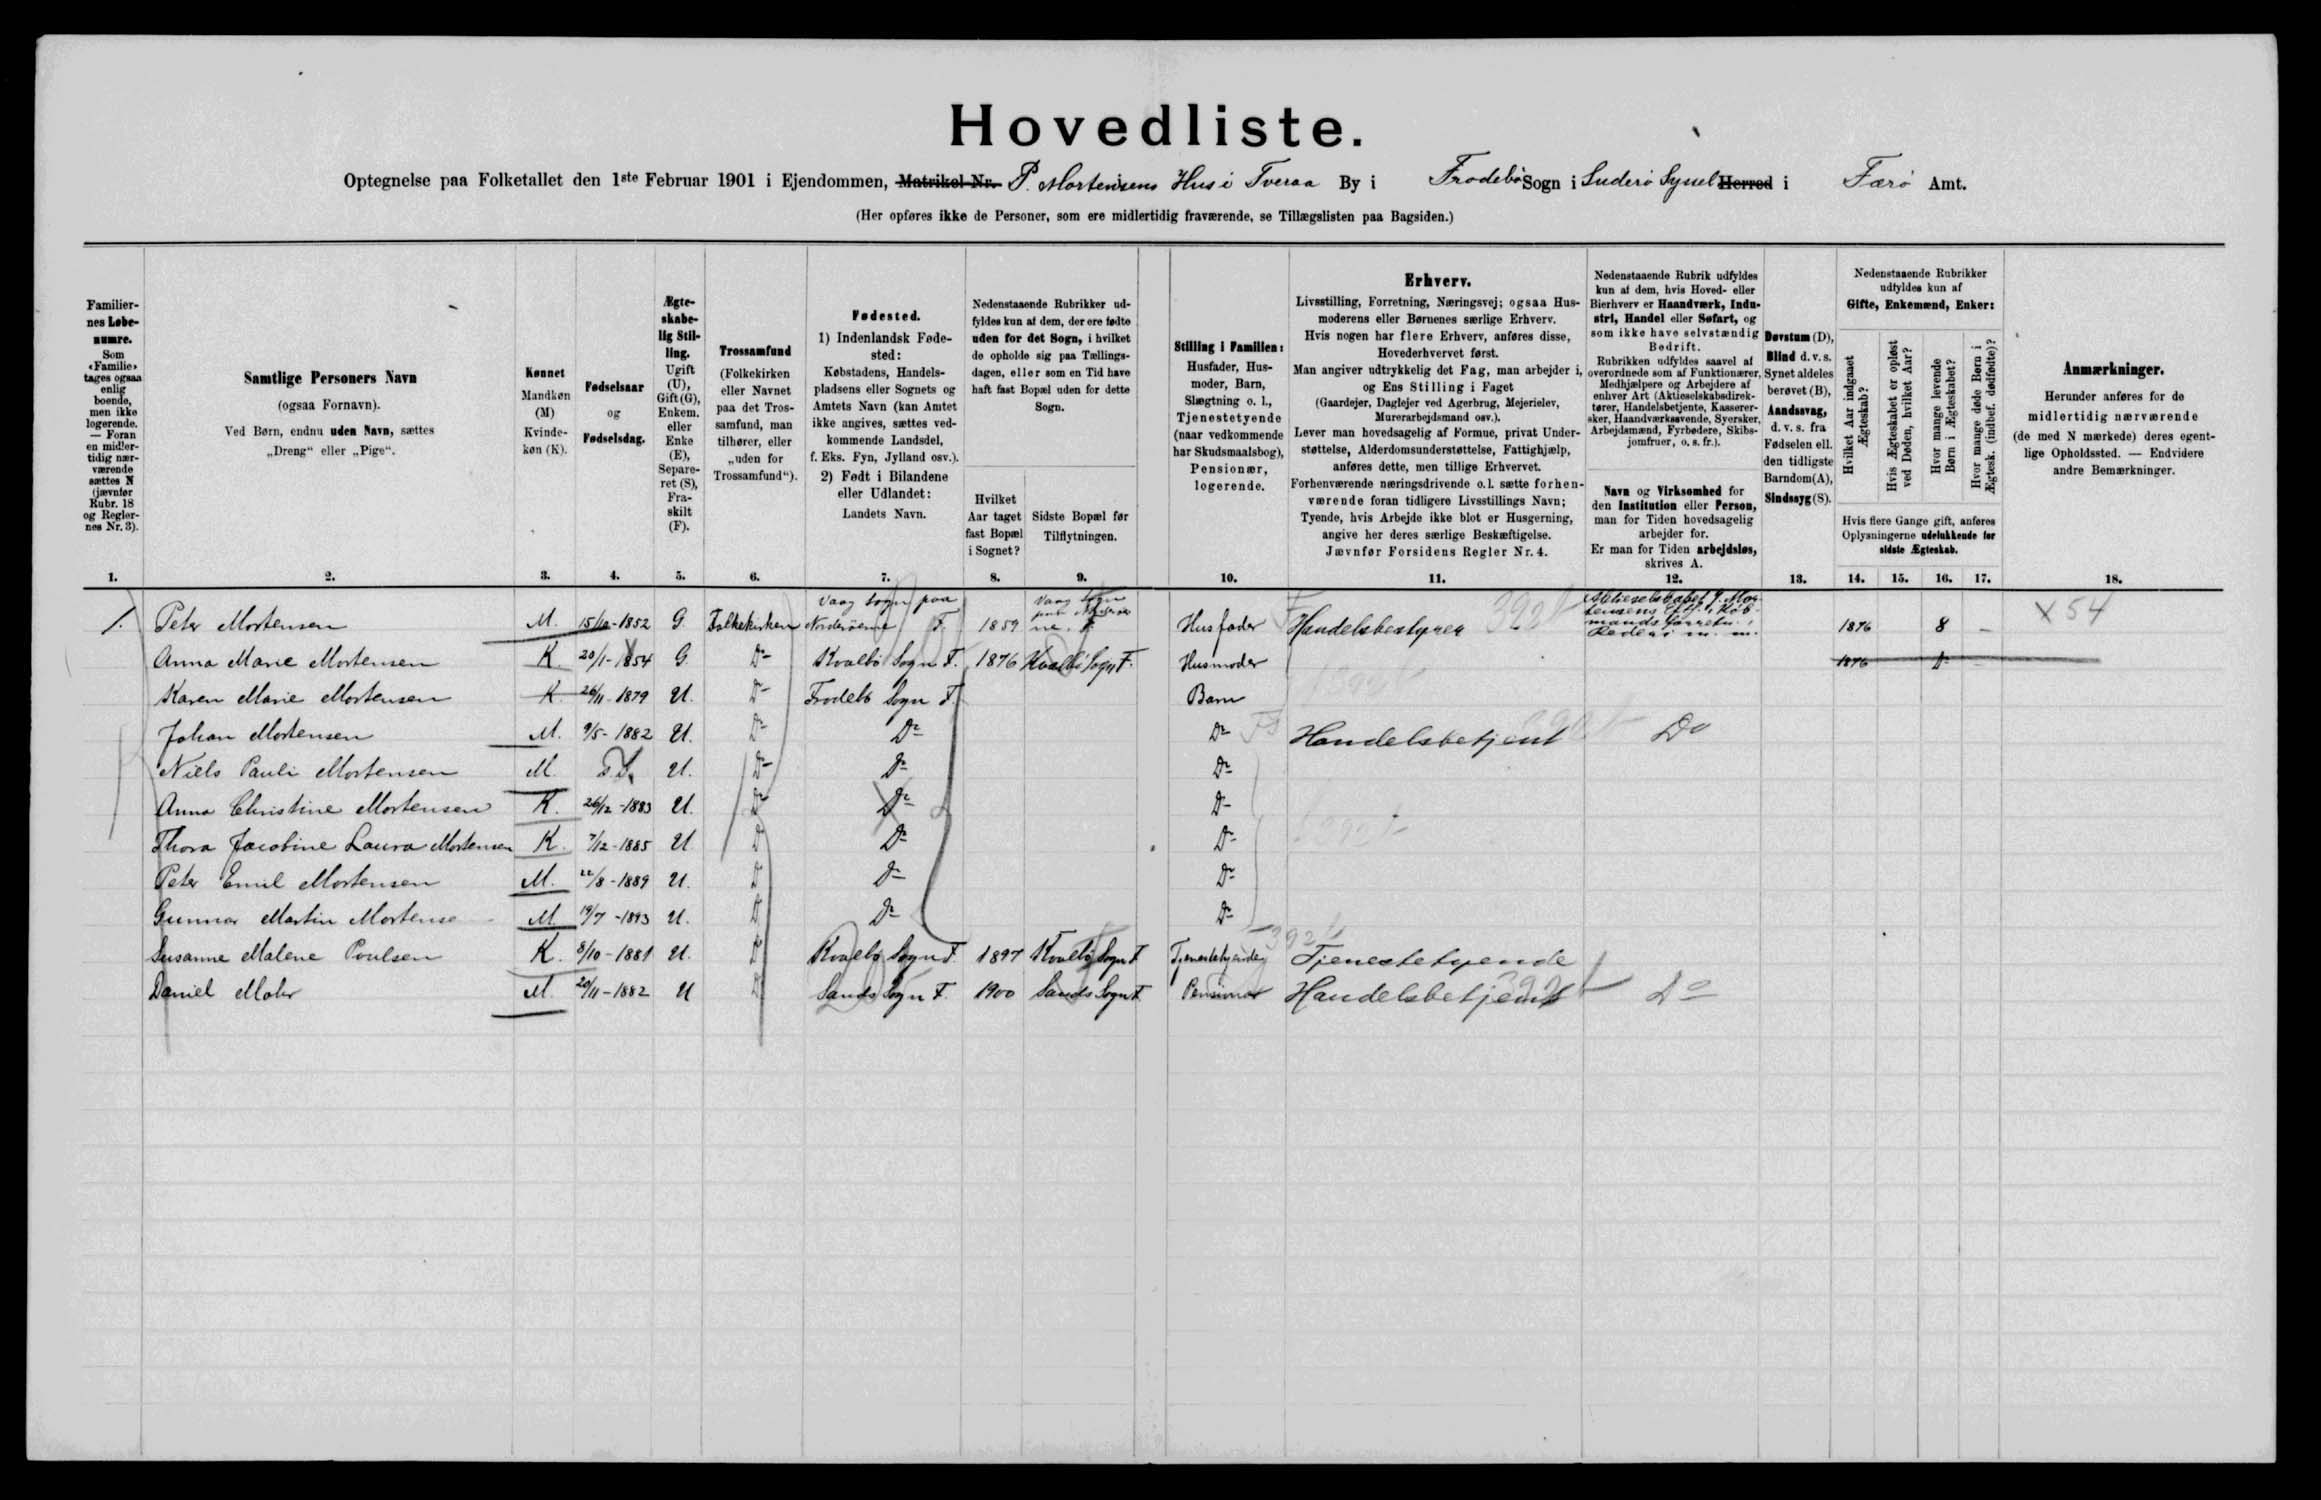 Hovedliste.
Optegnelse paa Folketallet den 1ste Februar 1901 i Ejendommen, Matrikel Nr. P. Mortensens Hus i Tveraa By i Frodebø Sogn i Suderø Syssel Herred i Færø Amt.
(Her opføres ikke de Personer, som ere midlertidig fraværende, se Tillægslisten paa Bagsiden.)
Familier-
nes Løbe-
numre.
Som
«Familie»
tages ogsaa
enlig
boende,
men ikke
logerende.
— Foran
en midler-
tidig nær-
værende
sættes N
(jævnfør
Rubr. 18
og Regler-
nes Nr. 3).
1.
Samtlige Personers Navn
(ogsaa Fornavn).
Ved Børn, endnu uden Navn, sættes
„Dreng“ eller „Pige“.
2.
Kønnet
Mandkøn
(M)
Kvinde-
køn (K).
3.
Fødselsaar
og
Fødselsdag.
4.
Ægte-
skabe-
lig Stil-
ling.
Ugift
(U),
Gift (G),
Enkem.
eller
Enke
(E),
Separe-
ret (S),
Fra-
skilt
(F).
5.
Trossamfund
(Folkekirken
eller Navnet
paa det Tros-
samfund, man
tilhører, eller
„uden for
Trossamfund“).
6.
Fødested.
1) Indenlandsk Føde-
sted:
Købstadens, Handels-
pladsens eller Sognets og
Amtets Navn (kan Amtet
ikke angives, sættes ved-
kommende Landsdel,
f. Eks. Fyn, Jylland osv.).
2) Født i Bilandene
eller Udlandet:
Landets Navn.
7.
Nedenstaaende Rubrikker ud-
fyldes kun af dem, der ere fødte
uden for det Sogn, i hvilket
de opholde sig paa Tællings-
dagen, eller som en Tid have
haft fast Bopæl uden for dette
Sogn.
Hvilket
Aar taget
fast Bopæl
i Sognet?
8.
Sidste Bopæl før
Tilflytningen.
9.
Stilling i Familien:
Husfader, Hus-
moder, Barn,
Slægtning o. l.,
Tjenestetyende
(naar vedkommende
har Skudsmaalsbog),
Pensionær,
logerende.
10.
Erhverv.
Livsstilling, Forretning, Næringsvej; ogsaa Hus-
moderens eller Børnenes særlige Erhverv.
Hvis nogen har flere Erhverv, anføres disse,
Hovederhvervet først.
Man angiver udtrykkelig det Fag, man arbejder i,
og Ens Stilling i Faget
(Gaardejer, Daglejer ved Agerbrug, Mejerielev,
Murerarbejdsmand osv.).
Lever man hovedsagelig af Formue, privat Under-
støttelse, Alderdomsunderstøttelse, Fattighjælp,
anføres dette, men tillige Erhvervet.
Forhenværende næringsdrivende o.l. sætte forhen-
værende foran tidligere Livsstillings Navn;
Tyende, hvis Arbejde ikke blot er Husgerning,
angive her deres særlige Beskæftigelse.
Jævnfør Forsidens Regler Nr. 4.
11.
Nedenstaaende Rubrik udfyldes
kun af dem, hvis Hoved- eller
Bierhverv er Haandværk, Indu-
stri, Handel eller Søfart, og
som ikke have selvstændig
Bedrift.
Rubrikken udfyldes saavel af
overordnede som af Funktionærer,
Medhjælpere og Arbejdere af
enhver Art (Aktieselskabsdirek-
tører, Handelsbetjente, Kasserer-
sker, Haandværkssvende, Syersker,
Arbejdsmænd, Fyrbødere, Skibs-
jomfruer, o. s. fr.).
Navn og Virksomhed for
den Institution eller Person,
man for Tiden hovedsagelig
arbejder for.
Er man for Tiden arbejdsløs,
skrives A.
12.
Døvstum (D),
Blind d. v. s.
Synet aldeles
berøvet (B),
Aandssvag,
d. v. s. fra
Fødselen ell.
den tidligste
Barndom (A),
Sindssyg (S).
13.
Nedenstaaende Rubrikker
udfyldes kun af
Gifte, Enkemænd, Enker:
Hvilket Aar indgaaet
Ægteskab?
Hvis Ægteskabet er opløst
ved Døden, hvilket Aar?
Hvor mange levende
Børn i Ægteskabet?
Hvor mange døde Børn i
Ægtesk. (indbef. dødfødte)?
Hvis flere Gange gift, anføres
Oplysningerne udelukkende for
sidste Ægteskab.
14. 15. 16. 17.
Anmærkninger.
Herunder anføres for de
midlertidig nærværende
(de med N mærkede) deres egent-
lige Opholdssted. — Endvidere
andre Bemærkninger.
18.
1. Peter Mortensen M. 15/12-1852 G. Folkekirken Vaag Sogn paa Norderøerne F. 1859 Vaag Sogn paa Norderøerne. F. Husfader Handelsbestyrer 392 1876 8 - x 54
Anna Marie Mortensen K 20/1-1854 G. Do Kvalbø Sogn F. 1876 Kvalbø Sogn F. Husmoder 1876 Do
Karen Marie Mortensen K. 26/11-1879 U. Do Frodebø Sogn F. Barn
Johan Mortensen M. 9/5-1882 U. Do Do Do Handelsbetjent Do
Niels Pauli Mortensen M. U. Do Do Do
Anna Christine Mortensen K. 26/12-1883 U. Do Do Do
Thora Jacobine Laura Mortensen K. 7/12-1885 U Do Do
Peter Emil Mortensen M. 22/8-1889 U. Do Do
Gunnar Martin Mortense M. 19/7-1893 U. Do Do
Susanne Malene Poulsen K. 8/10-1881 U. Kvalbø Sogn F. 1897 Kvalbø Sogn F Tjenestetyende Tjenestetyende
Daniel Mohr M. 20/11-1882 U Sands Sogn F. 1900 Sands Sogn F. Pensionær Handelsbetjent Do